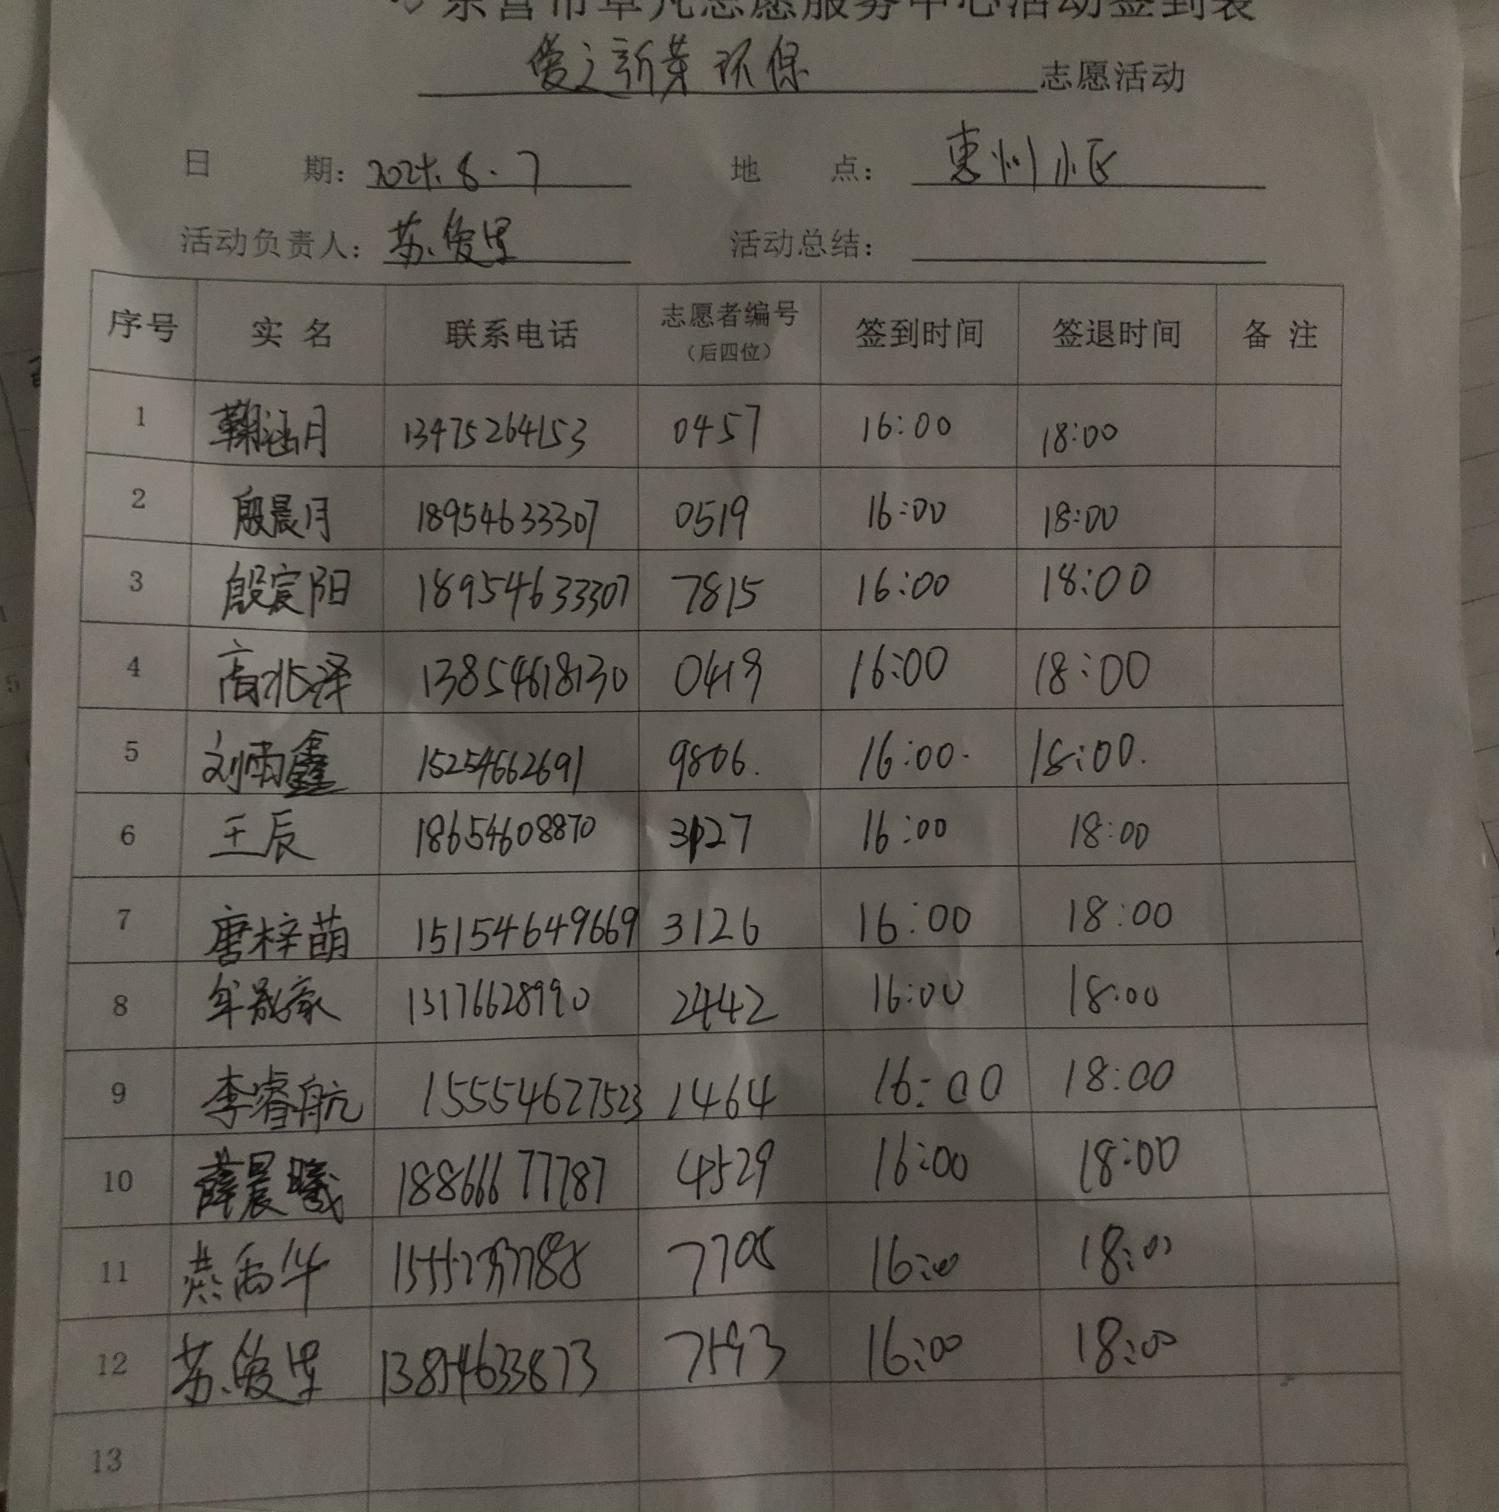 东营市草凡志愿服务中心活动签到表
爱之新芽环保 志愿活动
日 期: 2024.8.7 地 点: 惠州小区
活动负责人: 苏俊 活动总结:
序号 实 名 联系电话 志愿者编号(后四位) 签到时间 签退时间 备 注
1 鞠涵月 13475264153 0457 16:00 18:00
2 殷晨月 18954633307 0519 16:00 18:00
3 殷宸阳 18954633307 7815 16:00 18:00
4 高兆泽 13854618130 0419 16:00 18:00
5 刘雨鑫 15254662691 9806. 16:00. 18:00.
6 王辰 18654608870 3127 16:00 18:00
7 唐梓萌 15154649669 3126 16:00 18:00
8 牟晟豪 13176628990 2442 16:00 18:00
9 李睿航 15554627523 1464 16:00 18:00
10 薛晨曦 18866677787 4529 16:00 18:00
11 燕禹华 16:00 18:00
12 苏俊 13854633873 7593 16:00 18:00
13